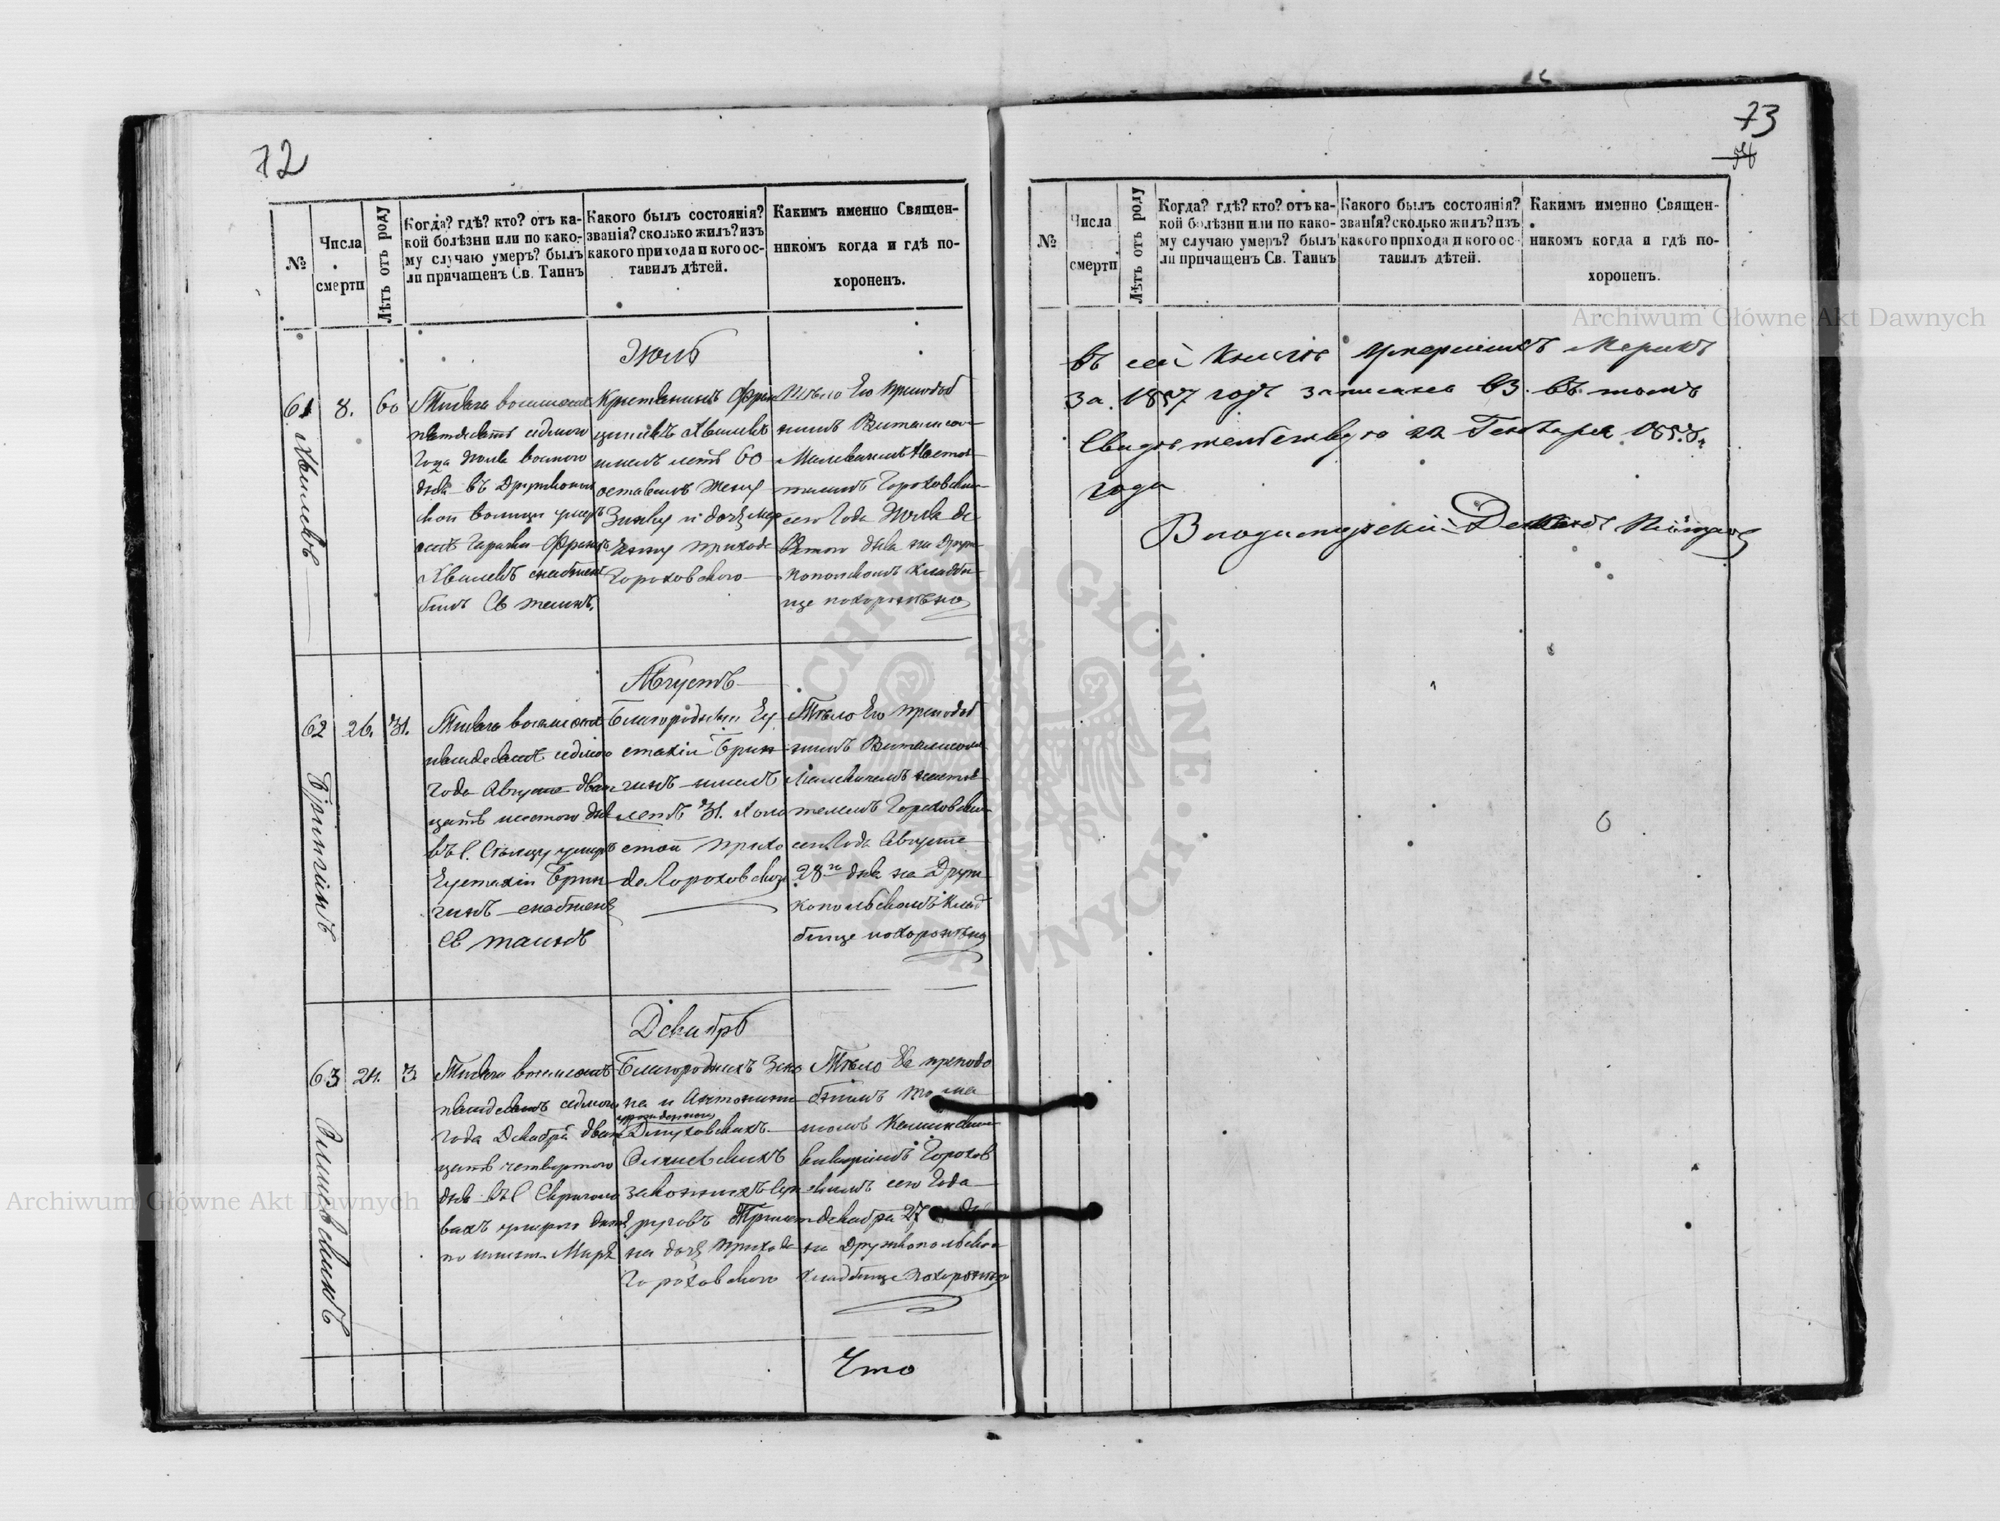 72
№
Числа смерти
Лѣтъ отъ роду
Когда? гдѣ? кто? отъ ка-
кой болѣзни или по како-
му случаю умеръ? былъ
ли причащенъ Св. Таинъ
Какого былъ состоянія?
званія? сколько жилъ? изъ
какого прихода и кого ос-
тавилъ дѣтей.
Какимъ именно Священ-
никомъ когда и гдѣ по-
хороненъ.
Іюль
61
8.
60
Хвилевъ
Тысяча восемьсотъ
пятдесятъ седмого
Года Іюля восмого
дня въ Дружкополь
ской волицы умеръ
Хвилевъ снабженъ
былъ Св таинъ.
Крестьянинъ
Хвилевъ
имелъ летъ 60
оставилъ жену
и дочь
прихода
Гороховского
Тѣло Его Преподоб
нымъ Виталисомъ
Малевичемъ Настоя
телемъ Гороховским
сего Года Іюля де
вятого дня на Друж
копольскомъ Кладби
ще похоронено
Августъ
62
26.
31.
Брингинъ
Тысяча восемьсотъ
пятдесятъ седмого
года Августа двад
цать шестого дня
въ С. умеръ
Еустахій Брин
гинъ снабженъ
Св таинъ
Благородный Еу
стахій Брин
гинъ имелъ
летъ 31. Холо
стой прихо
да Гороховского
Тѣло Его преподоб
нымъ Виталисомъ
Малевичемъ настоя
телемъ Гороховским
сего Года Августа
28го дня на Друж
копольскомъ Клад
бище похоронено
Декабрь
63
24.
3.
Тысяча восемьсотъ
пятдесятъ седмого
года Декабря двад
цать четвертого
дня въ С
вахъ умерла
Благородныхъ Зено
на и Антонины
законныхъ суп
руговъ
на дочь прихода
Гороховского
Тѣло Ее преподо
бнымъ Тома
шомъ
викаріемъ Горохов
скимъ сего Года
Декабря 27 дня
на Дружкопольском
кладбище похоронено
Что
73
№
Числа
смерти
Лѣтъ отъ роду
Когда? гдѣ? кто? отъ ка-
кой болѣзни или по како-
му случаю умеръ? былъ
ли причащенъ Св. Таинъ
Какого былъ состоянія?
званія? сколько жилъ? изъ
какого прихода и кого ос-
тавилъ дѣтей.
Какимъ именно Священ-
никомъ когда и гдѣ по-
хороненъ.
въ сей Книгѣ умершихъ Метрикъ
за 1857 годъ записано 63. въ томъ
Свидѣтельствую 22 Генваря 1858
года
Владимирскій Деканъ
Archiwum Główne Akt Dawnych
Archiwum Główne Akt Dawnych
ARCHIWUM GŁÓWNE AKT DAWNYCH